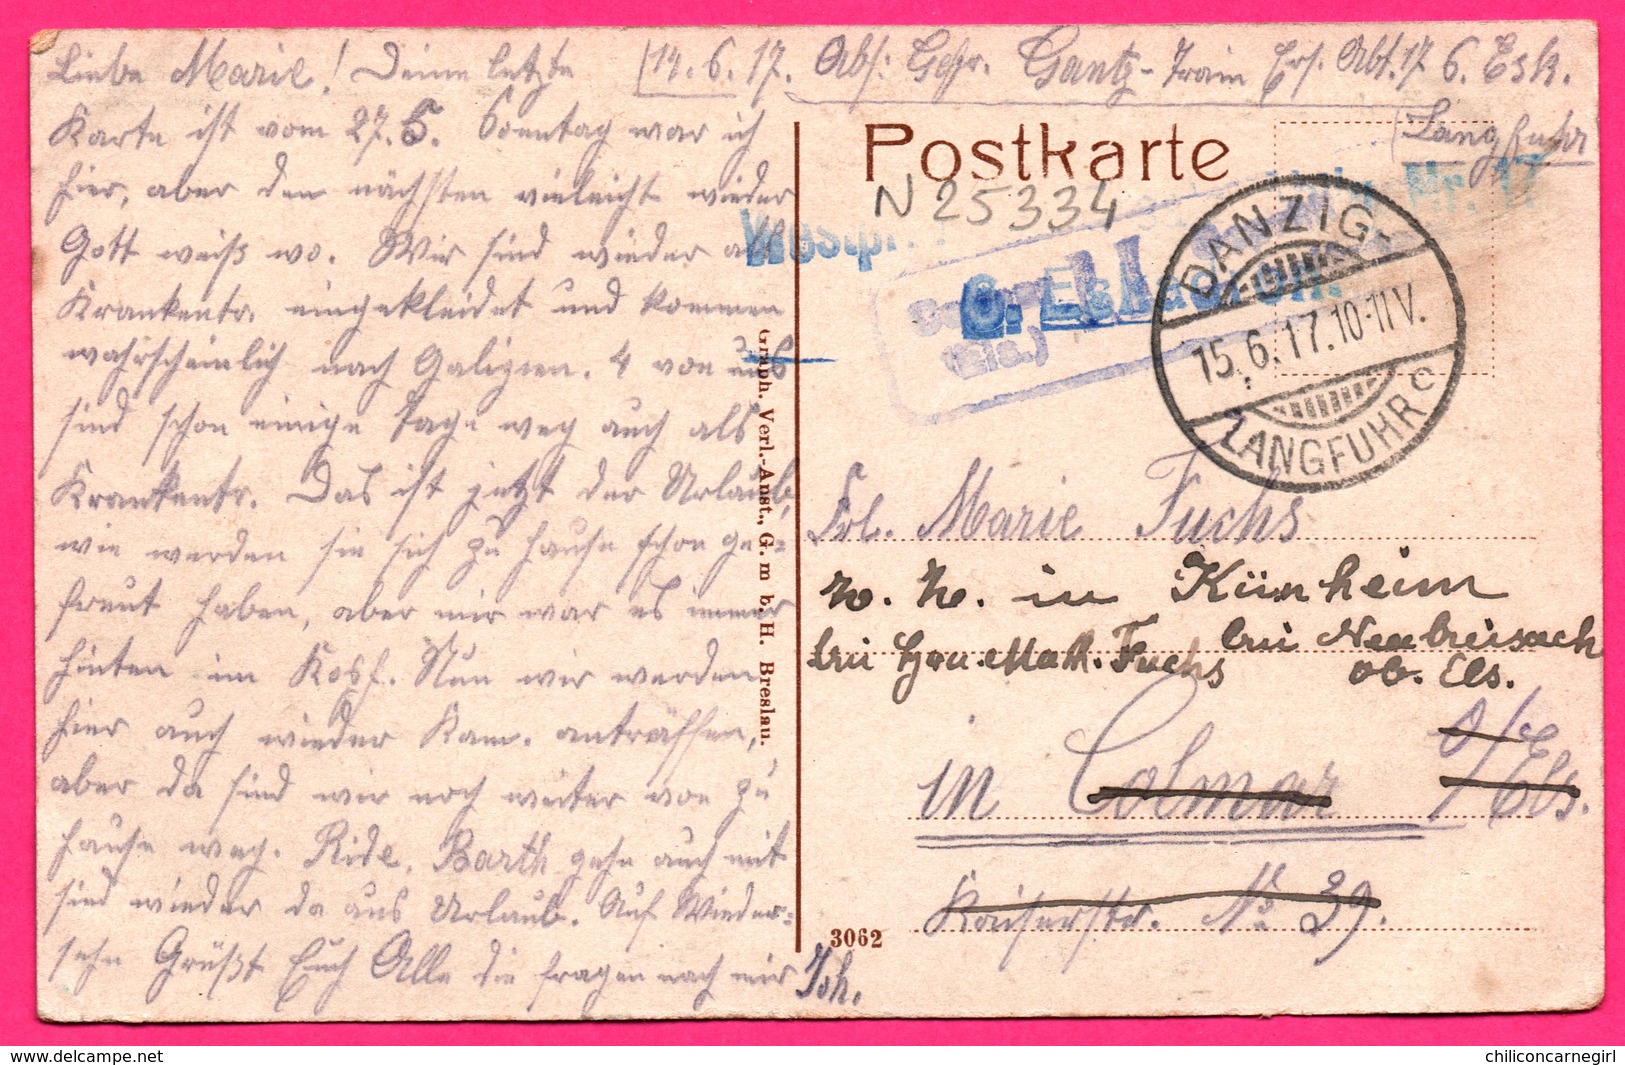 Liebe Marie! Deine letzte
Karte ist vom 27.5. Sonntag war ich
hier, aber den nächsten vielleicht wieder
Gott weiß wo. Wir sind wieder als
Krankentr. eingekleidet und kommen
wahrscheinlich nach Galizien. 4 von uns
sind schon einige Tage weg auch als
Krankentr. Das ist jetzt der Urlaub,
wie werden sie sich zu hause schon ge-
freut haben, aber mir war es immer
hinten im Kopf. Nun wir werden
hier auch wieder Kam. anträffen,
aber da sind wir noch weiter von zu
hause weg. Ride, Barth gehn auch mit
sind wieder da aus Urlaub. Auf Wieder-
sehn Grüßt Euch Alle die fragen nach mir
Joh.
14.6.17. Abs: Gefr. Gantz-Train Ers. Abt. 17 6. Esk.
Langfuhr
Postkarte
N 25334
Westpr. Nr. 17
6. Eskadron
DANZIG-
15.6.17.10-11V.
LANGFUHR c
Frl. Marie Fuchs
z. Z. in Künheim
bei Hrn. Math. Fuchs
bei Neubreisach
ob. Els.
in Colmar
O/Els.
Kaiserstr. No 39.
Graph. Verl.-Anst., G. m. b. H. Breslau.
3062
chiliconcarnegirl